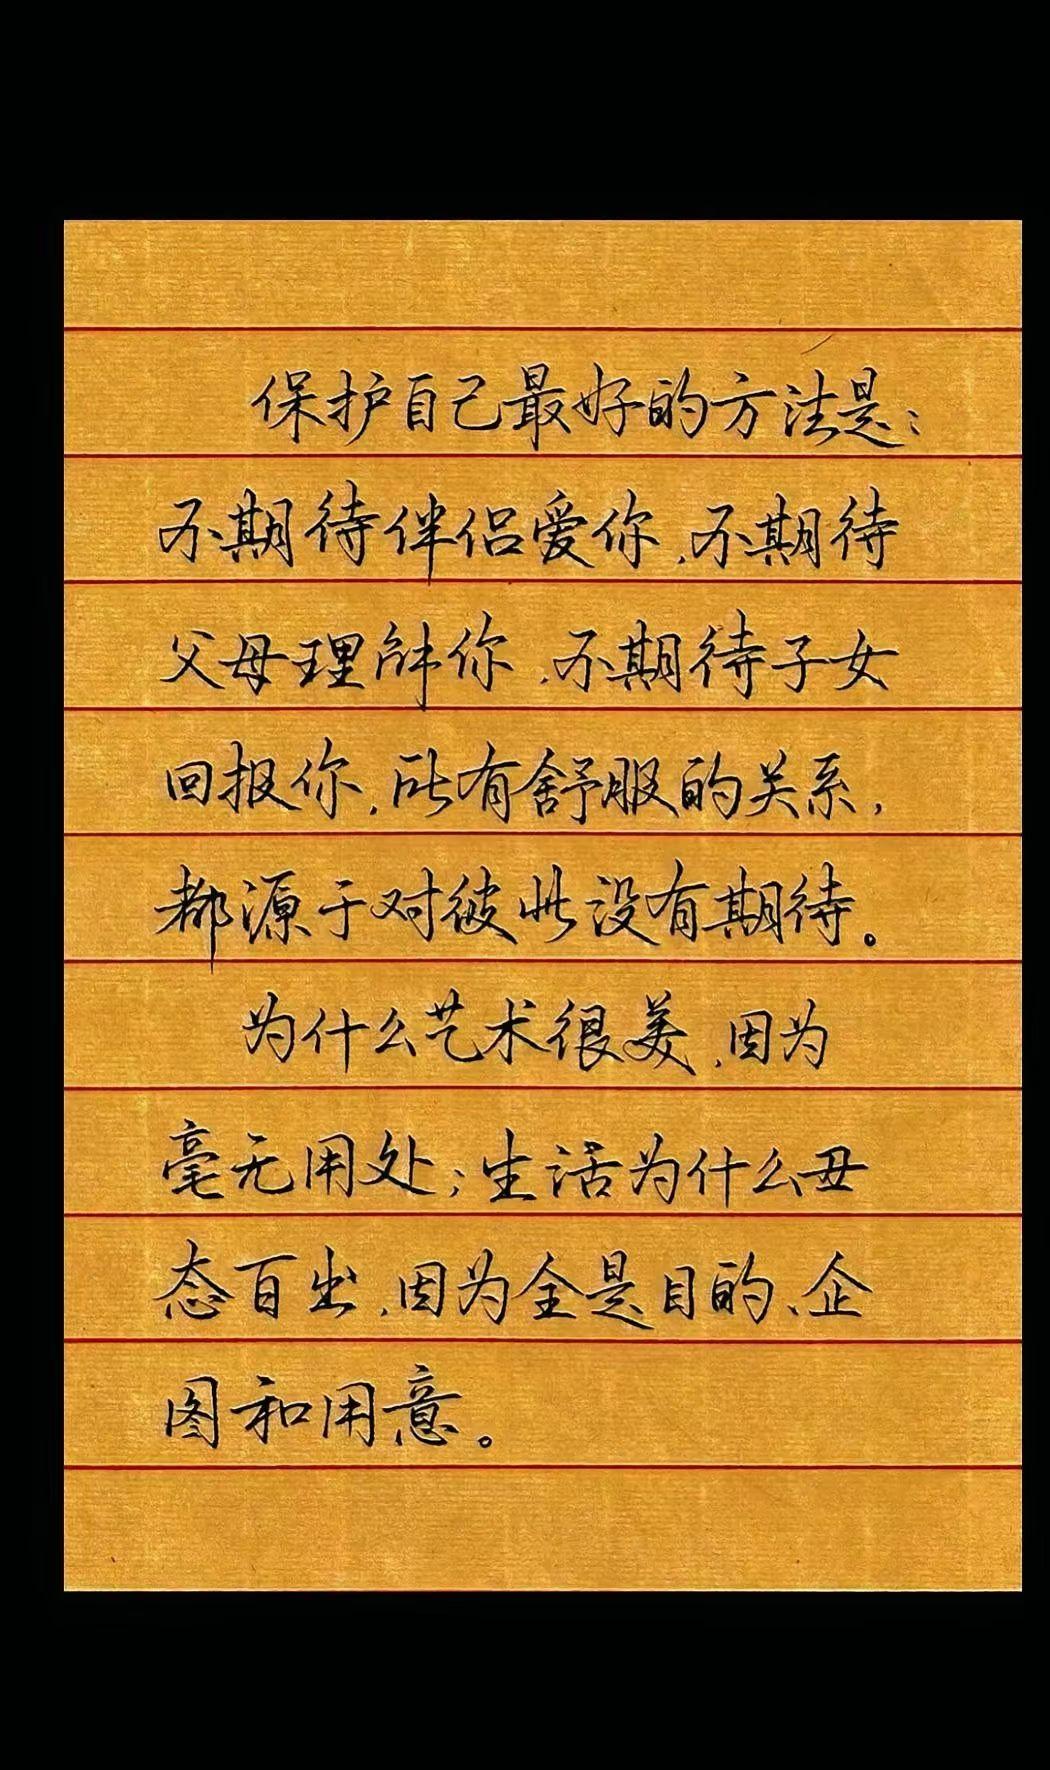 保护自己最好的方法是：
不期待伴侣爱你，不期待
父母理解你，不期待子女
回报你，所有舒服的关系，
都源于对彼此没有期待。
为什么艺术很美，因为
毫无用处；生活为什么丑
态百出，因为全是目的、企
图和用意。